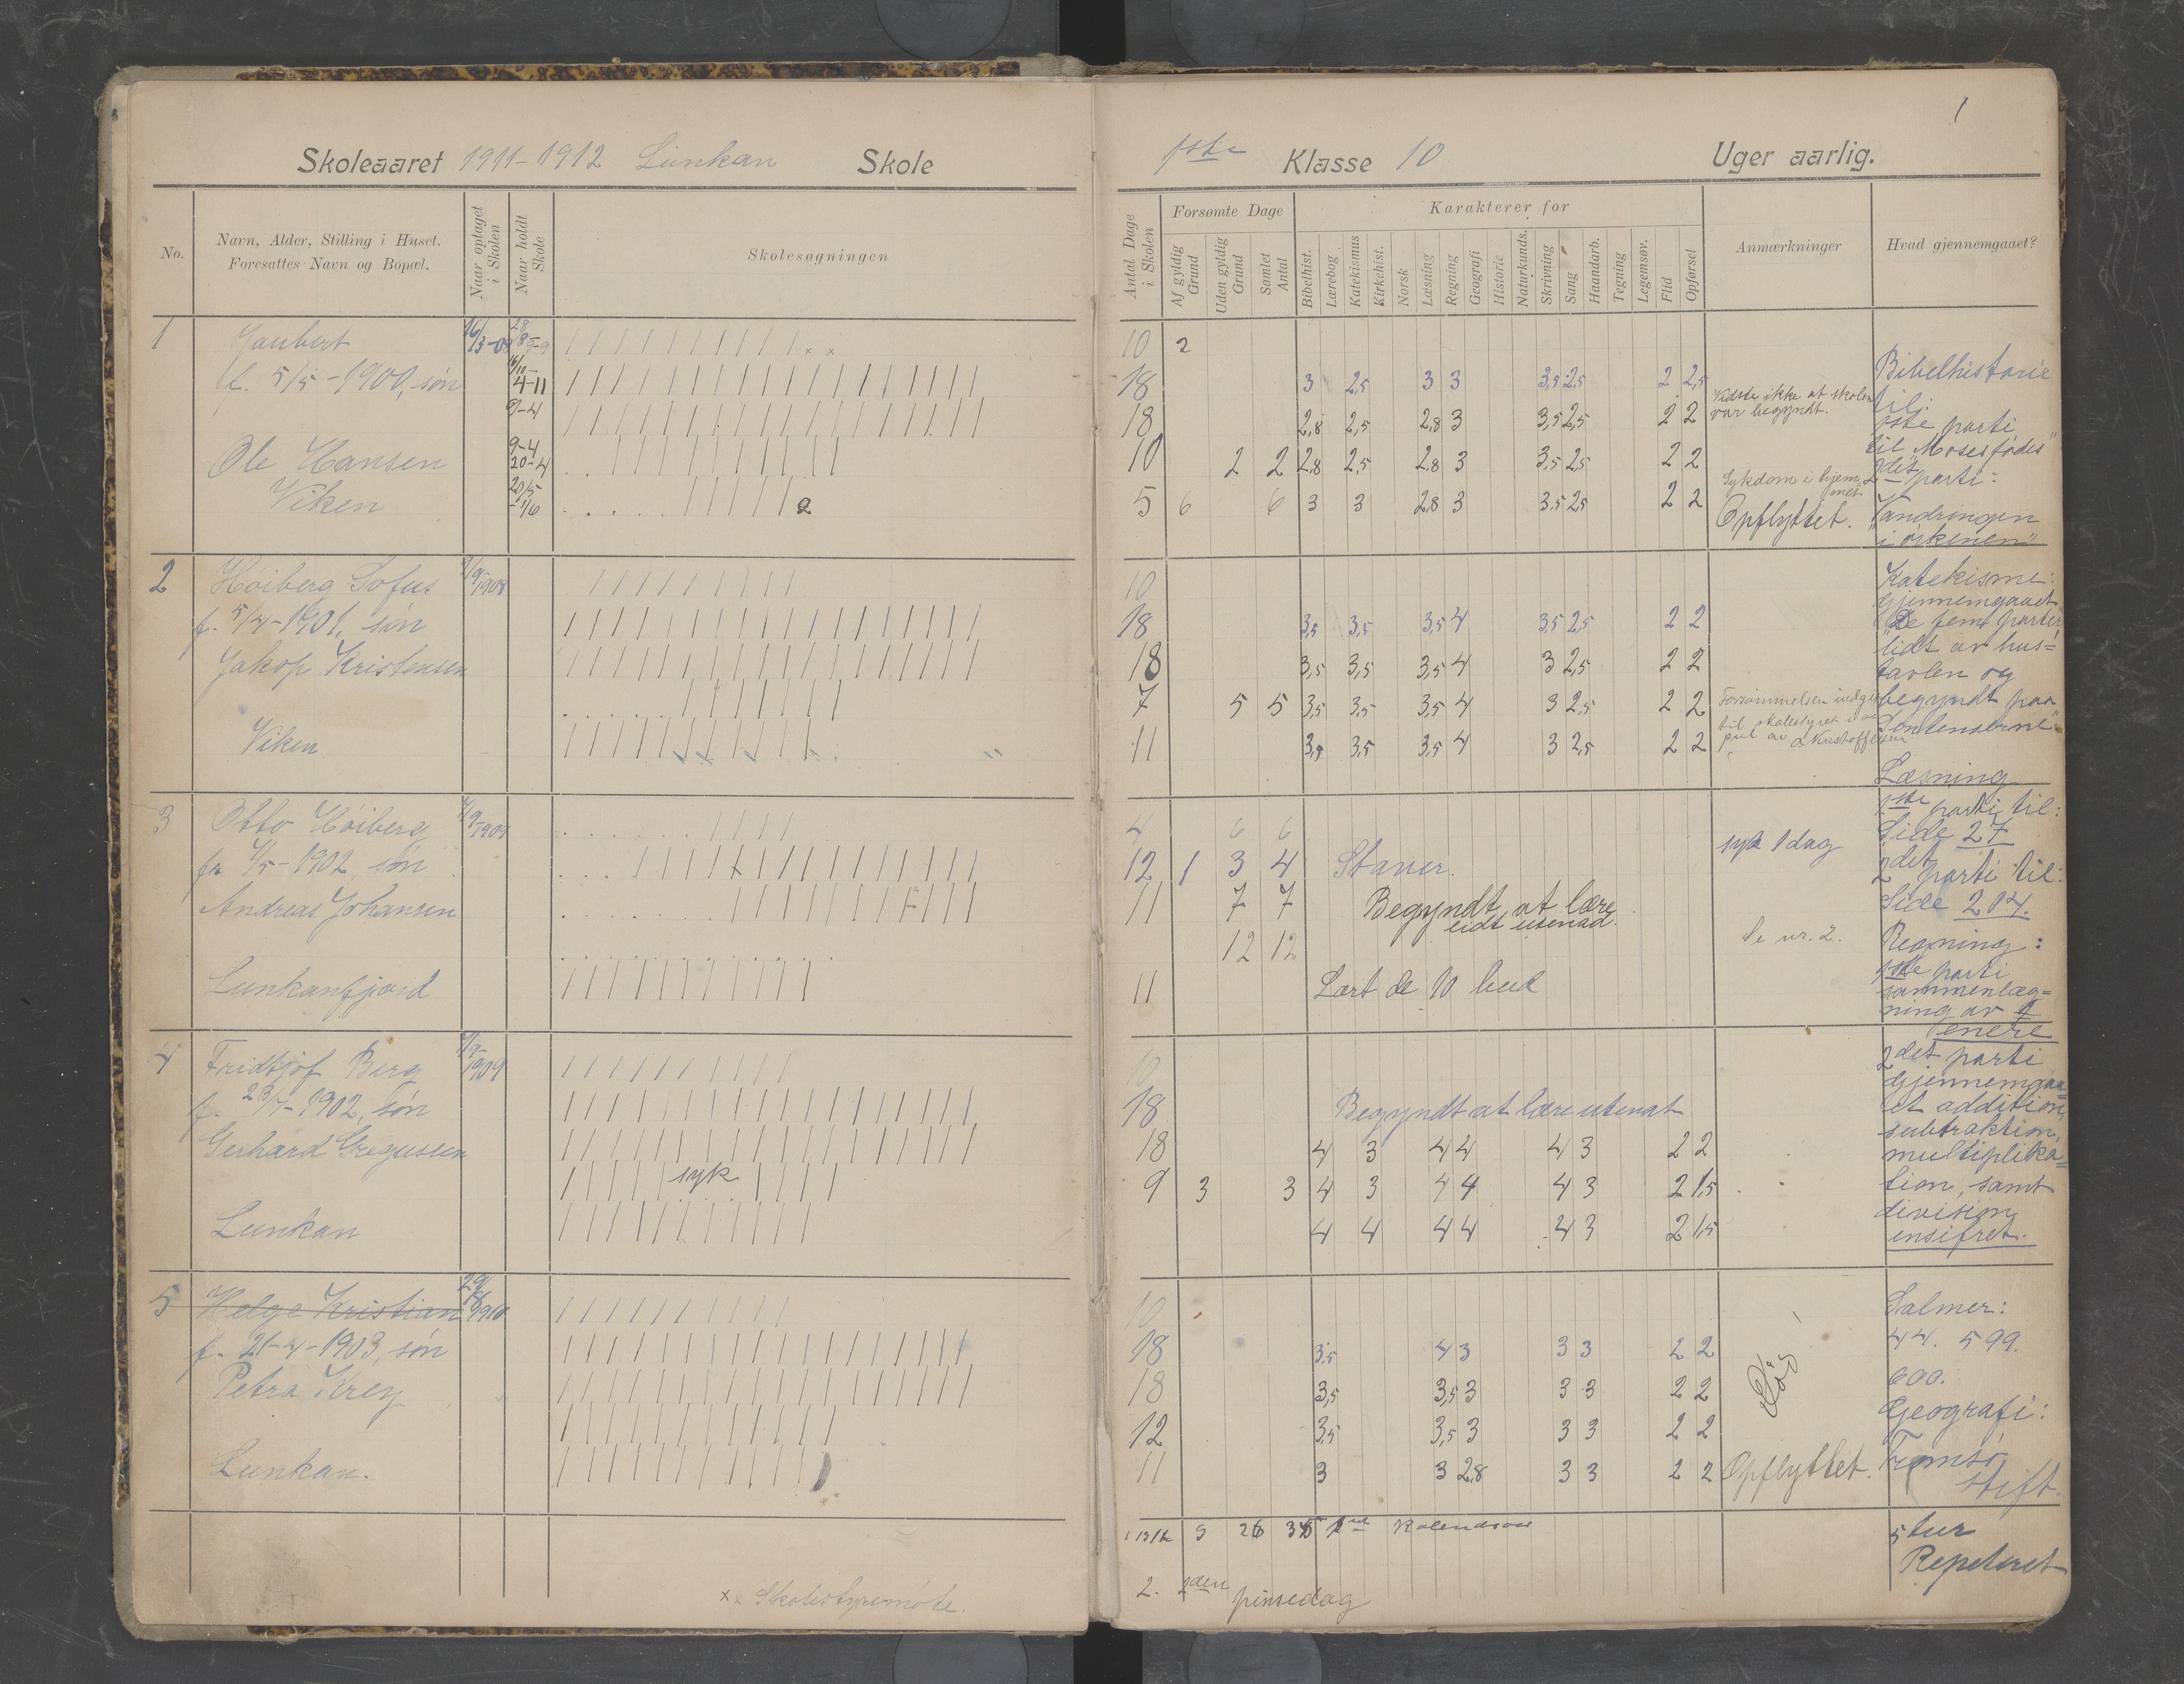 1
Skoleaaret 1911-1912 Lunkan Skole
1ste Klasse 10 Uger aarlig.
No.
Navn, Alder, Stilling i Huset.
Foresattes Navn og Bopæl.
Naar optaget i Skolen
Naar holdt Skole
Skolesøgningen
Antal Dage i Skolen
Forsømte Dage
Af gyldig Grund
Uden gyldig Grund
Samlet Antal
Karakterer for
Bibelhist.
Lærebog
Katekismus
Kirkehist.
Norsk
Læsning
Regning
Geografi
Historie
Naturkunds.
Skrivning
Sang
Haandarb.
Tegning
Legemsøv.
Flid
Opførsel
Anmærkninger
Hvad gjennemgaaet?
1
f. 5/5-1900, søn
Ole Hansen
Viken
16/3-09
4-11
9-4
9-4
20-4
20/5
-1/6
10 2
18 3 2,5 3 3 3,5 2,5 2 2,5
18 2,8 2,5 2,8 3 3,5 2,5 2 2
10 2 2 2,8 2,5 2,8 3 3,5 2,5 2 2
5 6 6 3 3 2,8 3 3,5 2,5 2 2
Vidste ikke at skolen
var begyndt.
Sykdom i hjem
met.
Opflyttet.
Bibelhistorie
til:
1ste parti
til "Moses fødes"
2det parti:
"Vandringen
i ørkenen"
2 Høiberg Sofus
f. 5/4-1901, søn
Jakop Kristensen
Viken
10
18 3,5 3,5 3,5 4 3,5 2,5 2 2
18 3,5 3,5 3,5 4 3 2,5 2 2
7 5 5 3,5 3,5 3,5 4 3 2,5 2 2
11 3,5 3,5 3,5 4 3 2,5 2 2
Katekisme:
Gjennemgaaet
De fem parter
lidt av hus=
tavlen og
begyndt paa
Sentenserne"
Læsning
1ste parti til:
Side 27
2det parti til:
Side 204.
Regning:
1ste parti
sammenlæg=
ning av
enere
2det parti
Gjennemgaa
et addition,
subtraktion,
multiplika=
tion, samt
division
ensifret.
3 Otto Høiberg
1909
1902, søn
Andreas Johansen
Lunkanfjord
4 6 6
12 1 3 4 Staver.
11 7 7 Begyndt at lære
lidt utenad.
12 12
11 Lært de 10 bud
syk 1 dag
Se nr. 2.
4 Fridtjof Berg
1909
f. 1902, søn
Gerhard Gregussen
Lunkan
syk
10
18 Begyndt at lære utenat
18 4 3 4 4 4 3 2 2
9 3 3 4 3 4 4 4 3 2 1,5
4 4 4 4 4 3 2 1,5
5 Helge Kristian
29/8 1910
f. 21-4-1903, søn
Petra Krey
Lunkan.
10
18 3,5 4 3 3 3 2 2
18 3,5 3,5 3 3 3 2 2
12 3,5 3,5 3 3 3 2 2
11 3 3 2,8 3 3 2 2
Opflyttet.
Salmer:
44. 599.
600.
Geografi:
Tromsø
stift.
Repeteret
x x Skolestyremøte.
2. 2den pinsedag